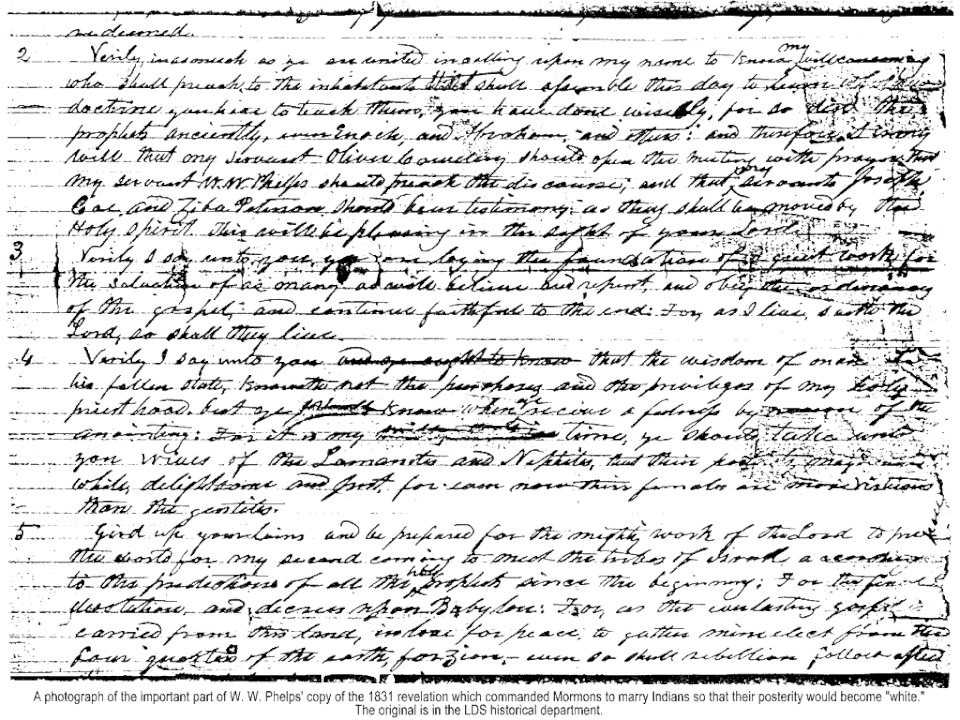 redeemed.
2 Verily, inasmuch as ye are united in calling upon my name to know my will concerning
who shall preach to the inhabitants that shall assemble this day to learn
doctrine you have to teach them, you have done wisely, for so did the
prophets anciently, even Enoch, and Abraham, and others: and therefore, it is my
will that my servant Oliver Cowdery should open the meeting with prayer; that
my servant W. W. Phelps should preach the discourse; and that my servants Joseph
Coe and Ziba Peterson should bear testimony as they shall be moved by the
Holy Spirit. This will be pleasing in the sight of your Lord.
3 Verily I say unto you, ye are laying the foundation of a great work for
the salvation of as many as will believe and repent, and obey the ordinances
of the gospel, and continue faithful to the end: For, as I live, saith the
Lord, so shall they live.
4 Verily I say unto you that the wisdom of man in
his fallen state, knoweth not the purposes and the privileges of my holy
priesthood, but ye shall know when ye receive a fulness by reason of the
anointing: For it is my will, that in time, ye should take unto
you wives of the Lamanites and Nephites, that their posterity may become
white, delightsome and just, for even now their females are more virtuous
than the gentiles.
5 Gird up your loins and be prepared for the mighty work of the Lord to prepare
the world for my second coming to meet the tribes of Israel according
to the predictions of all the holy prophets since the beginning; For the final
desolation, and decrees upon Babylon: For, as the everlasting gospel is
carried from this land, in love for peace, to gather mine elect from the
four quarters of the earth, for Zion,- even so shall rebellion follow after
A photograph of the important part of W. W. Phelps' copy of the 1831 revelation which commanded Mormons to marry Indians so that their posterity would become "white."
The original is in the LDS historical department.